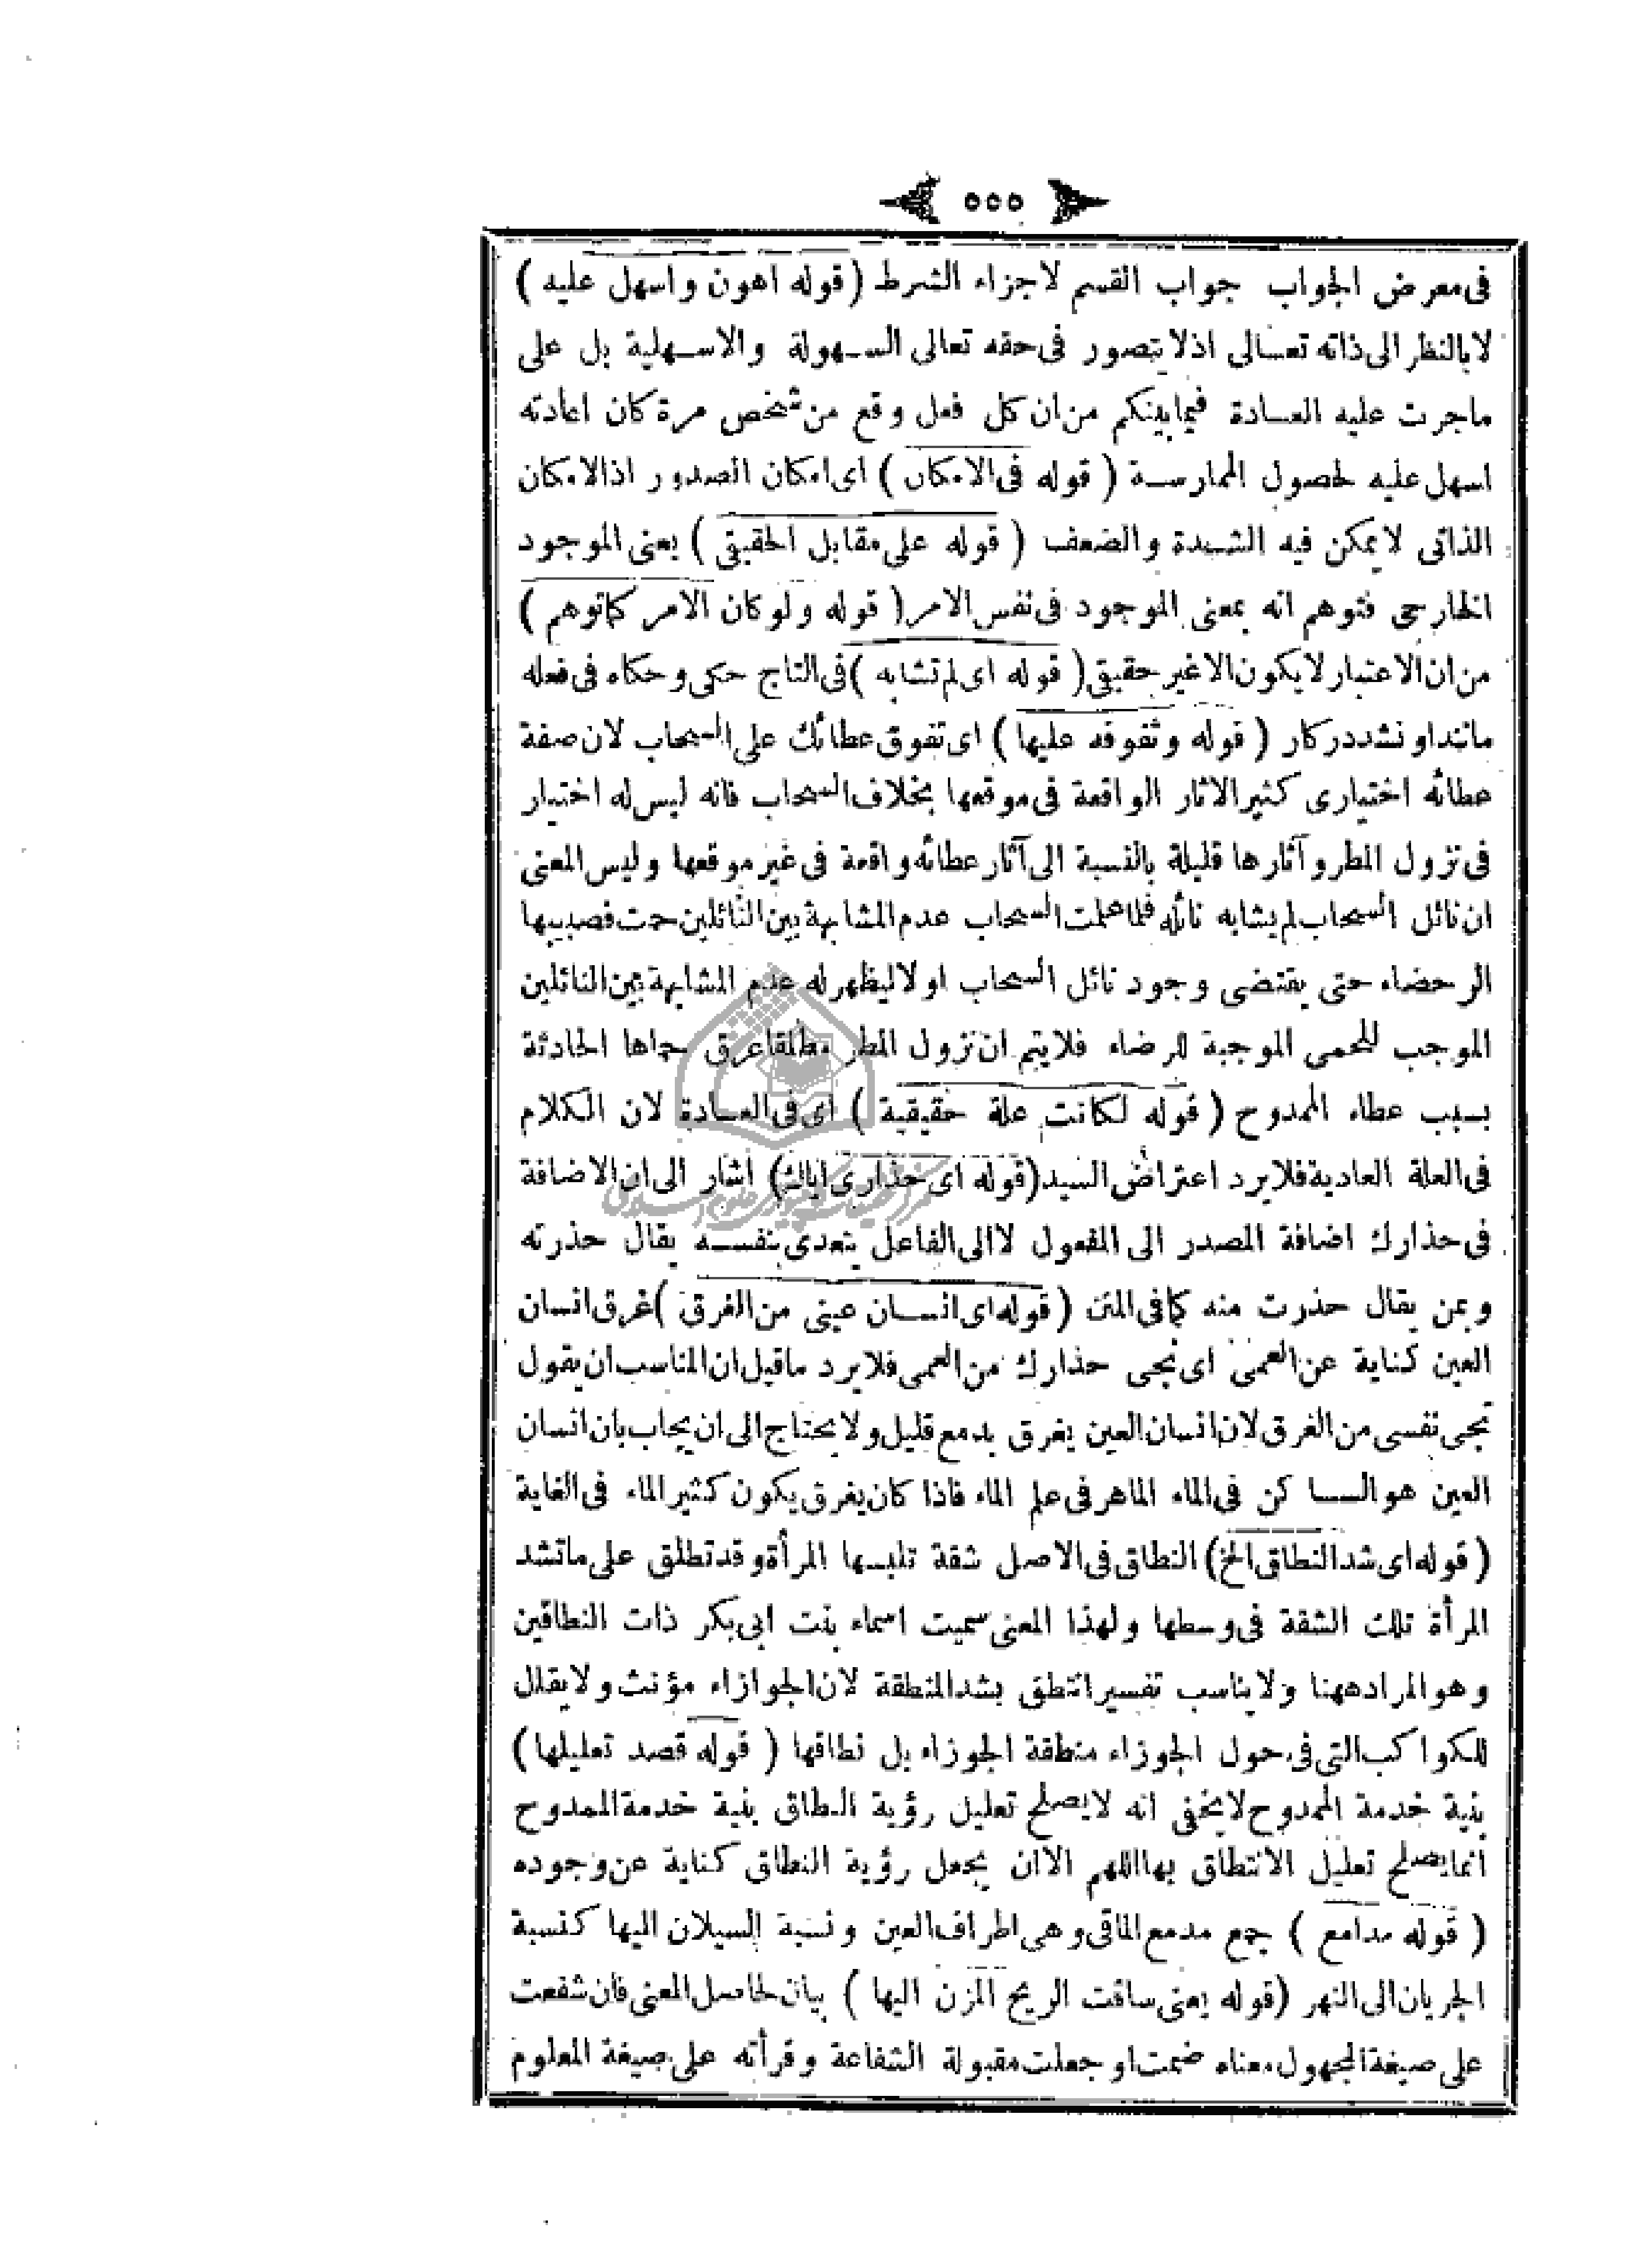 ٥٥٥
فى معرض الجواب جواب القسم لاجزاء الشرط ( قوله اهون واسهل عليه )
لابالنظر الى ذاته تعالى اذلا يتصور فى حقه تعالى السهولة والاسهلية بل على
ماجرت عليه العادة فيمابينكم من ان كل فعل وقع من شخص مرة كان اعادته
اسهل عليه لحصول الممارسة ( قوله فى الامكان ) اى امكان الصدور اذالامكان
الذاتى لايمكن فيه الشدة والضعف ( قوله على مقابل الحقيقى ) يعنى الموجود
الخارجى فتوهم انه بمعنى الموجود فى نفس الامر ( قوله ولوكان الامر كماتوهم )
من ان الاعتبار لايكون الا غير حقيقى ( قوله اى لم تشابه ) فى التاج حكى وحكاه فى فعله
ماننداو نشددركار ( قوله وتفوقه عليها ) اى تفوق عطائك على السحاب لان صفة
عطائه اختيارى كثير الاثار الواقعة فى موقعها بخلاف السحاب فانه ليس له اختيار
فى نزول المطر وآثارها قليلة بالنسبة الى آثار عطائه واقعة فى غير موقعها وليس المعنى
ان نائل السحاب لم يشابه نائله فلما علمت السحاب عدم المشابهة بين النائلين حمت فصبيبها
الرحضاء حتى يقتضى وجود نائل السحاب اولا ليظهر له عدم المشابهة بين النائلين
الموجب للحمى الموجبة للرضاء فلايتم ان نزول المطر مطلقا عرق حماها الحادثة
بسبب عطاء الممدوح ( قوله لكانت علة حقيقية ) اى فى العادة لان الكلام
فى العلة العادية فلايرد اعتراض السيد ( قوله اى حذارى اياك ) اشار الى ان الاضافة
فى حذارك اضافة المصدر الى المفعول لاالى الفاعل يتعدى بنفسه يقال حذرته
وبمن يقال حذرت منه كمافى المتن ( قوله اى انسان عينى من الغرق ) غرق انسان
العين كناية عن العمى اى نجى حذارك من العمى فلايرد ماقيل ان المناسب ان يقول
نجى نفسى من الغرق لان انسان العين يغرق بدمع قليل ولايحتاج الى ان يجاب بان انسان
العين هو الساكن فى الماء الماهر فى علم الماء فاذا كان يغرق يكون كثير الماء فى الغاية
( قوله اى شد النطاق الخ ) النطاق فى الاصل شقة تلبسها المرأة وقد تطلق على ماتشد
المرأة تلك الشقة فى وسطها ولهذا المعنى سميت اسماء بنت ابى بكر ذات النطاقين
وهو المرادههنا ولايناسب تفسير انتطق بشد المنطقة لان الجوازاء مؤنث ولايقال
للكواكب التى فى حول الجوزاء منطقة الجوزاء بل نطاقها ( قوله قصد تعليلها )
بنية خدمة الممدوح لايخفى انه لايصلح تعليل رؤية النطاق بنية خدمة الممدوح
انما يصلح تعليل الانتطاق بها اللهم الا ان يجعل رؤية النطاق كناية عن وجوده
( قوله مدامع ) جمع مدمع الماقى وهى اطراف العين ونسبة السيلان اليها كنسبة
الجريان الى النهر ( قوله يعنى ساقت الريح المزن اليها ) بيان لحاصل المعنى فان شفعت
على صيغة المجهول معناه ضمت او جعلت مقبولة الشفاعة وقرأته على صيغة المعلوم